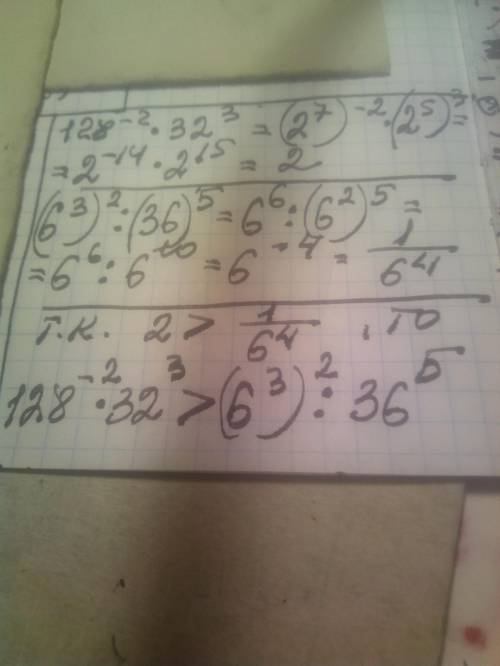 128⁻² · 32³ = (2⁷)⁻² · (2⁵)³ =
= 2⁻¹⁴ · 2¹⁵ = 2
(6³)² : (36)⁵ = 6⁶ : (6²)⁵ =
= 6⁶ : 6¹⁰ = 6⁻⁴ = 1/6⁴
т.к. 2 > 1/6⁴, то
128⁻² · 32³ > (6³)² : 36⁵